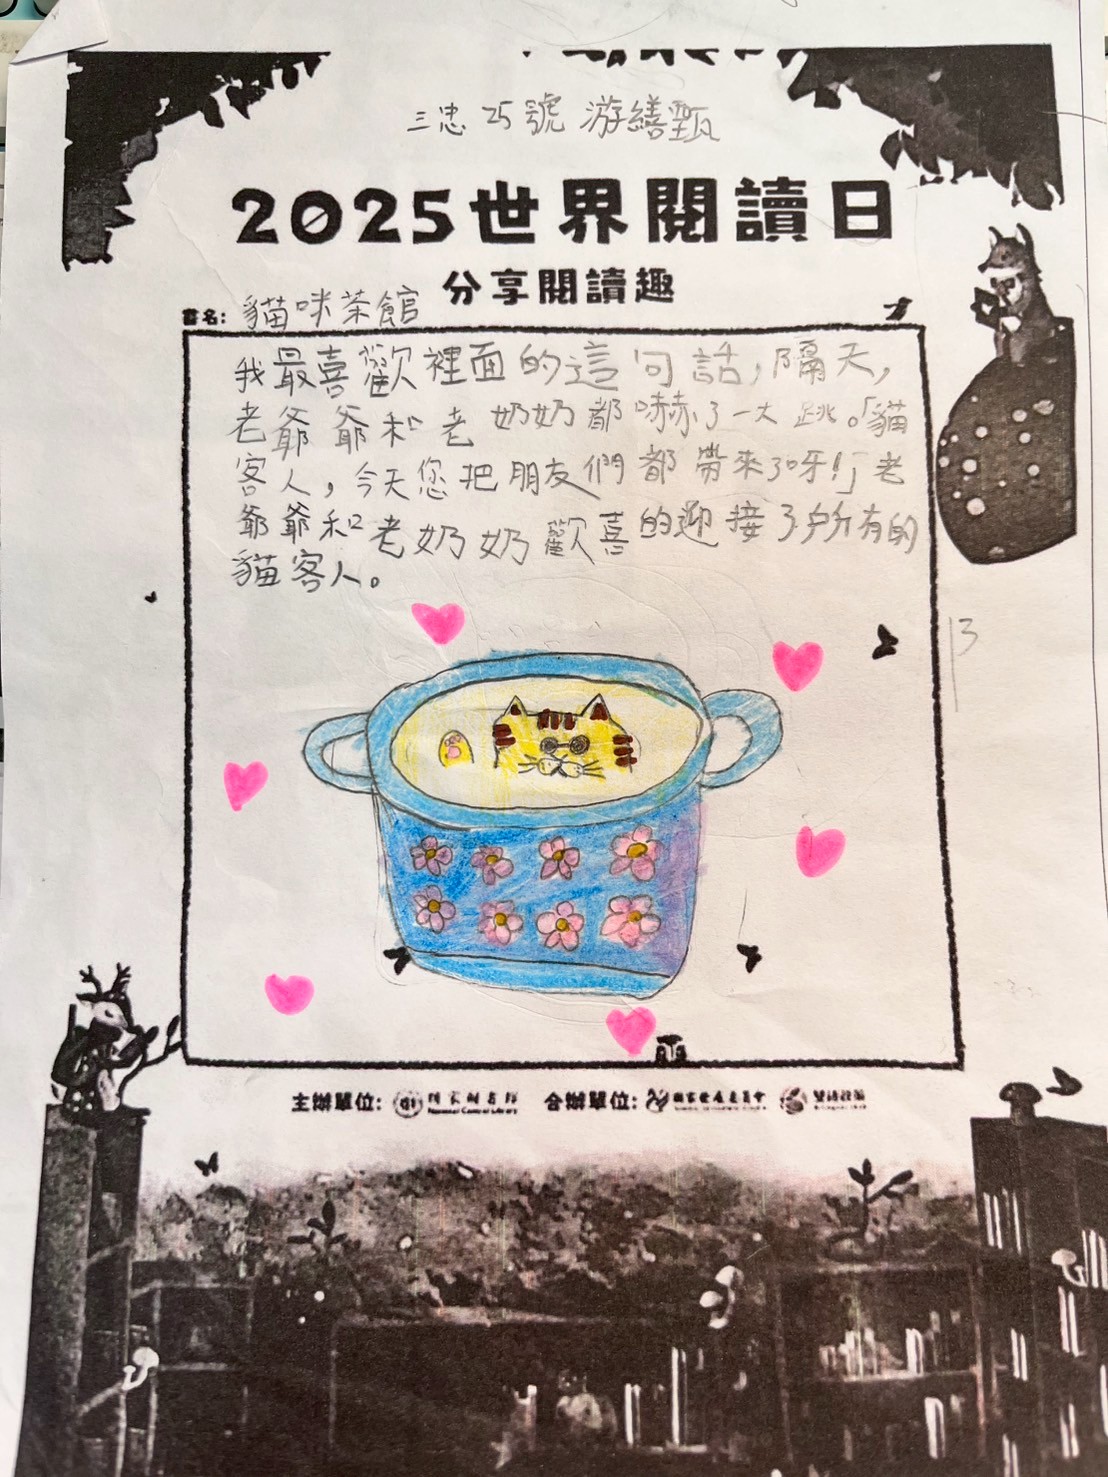 三忠 25號 游繕甄
2025世界閱讀日
分享閱讀趣
書名: 貓咪茶館
我最喜歡裡面的這句話,隔天,
老爺爺和老奶奶都嚇了一大跳。「貓
客人,今天您把朋友們都帶來了呀!」老
爺爺和老奶奶歡喜的迎接了所有的
貓客人。
13
主辦單位: 國家圖書館 National Central Library 合辦單位: 國家發展委員會